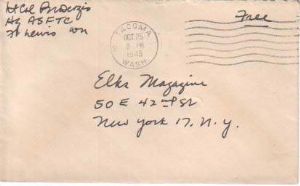 Lt Col
Hq ASFTC
Ft Lewis Wn
TACOMA
OCT 25
PM
1945
WASH.
Free
Elks Magazine
50 E 42nd St
New York 17. N.Y.